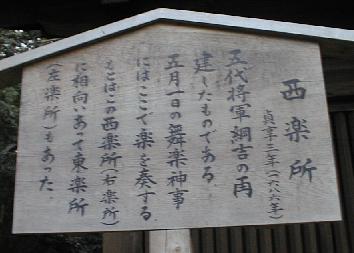 西楽所
貞享三年(一六八六年)
五代将軍綱吉の再
建したものである
五月一日の舞楽神事
にはここで楽を奏する
もとはこの西楽所(右楽所)
に相向いあって東楽所
(左楽所)もあった。